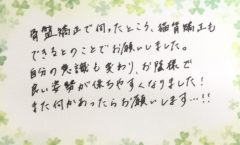 骨盤矯正で伺ったところ、猫背矯正も
できるとのことでお願いしました。
自分の意識も変わり、お陰様で
良い姿勢が保ちやすくなりました!
また何かあったらお願いします…!!